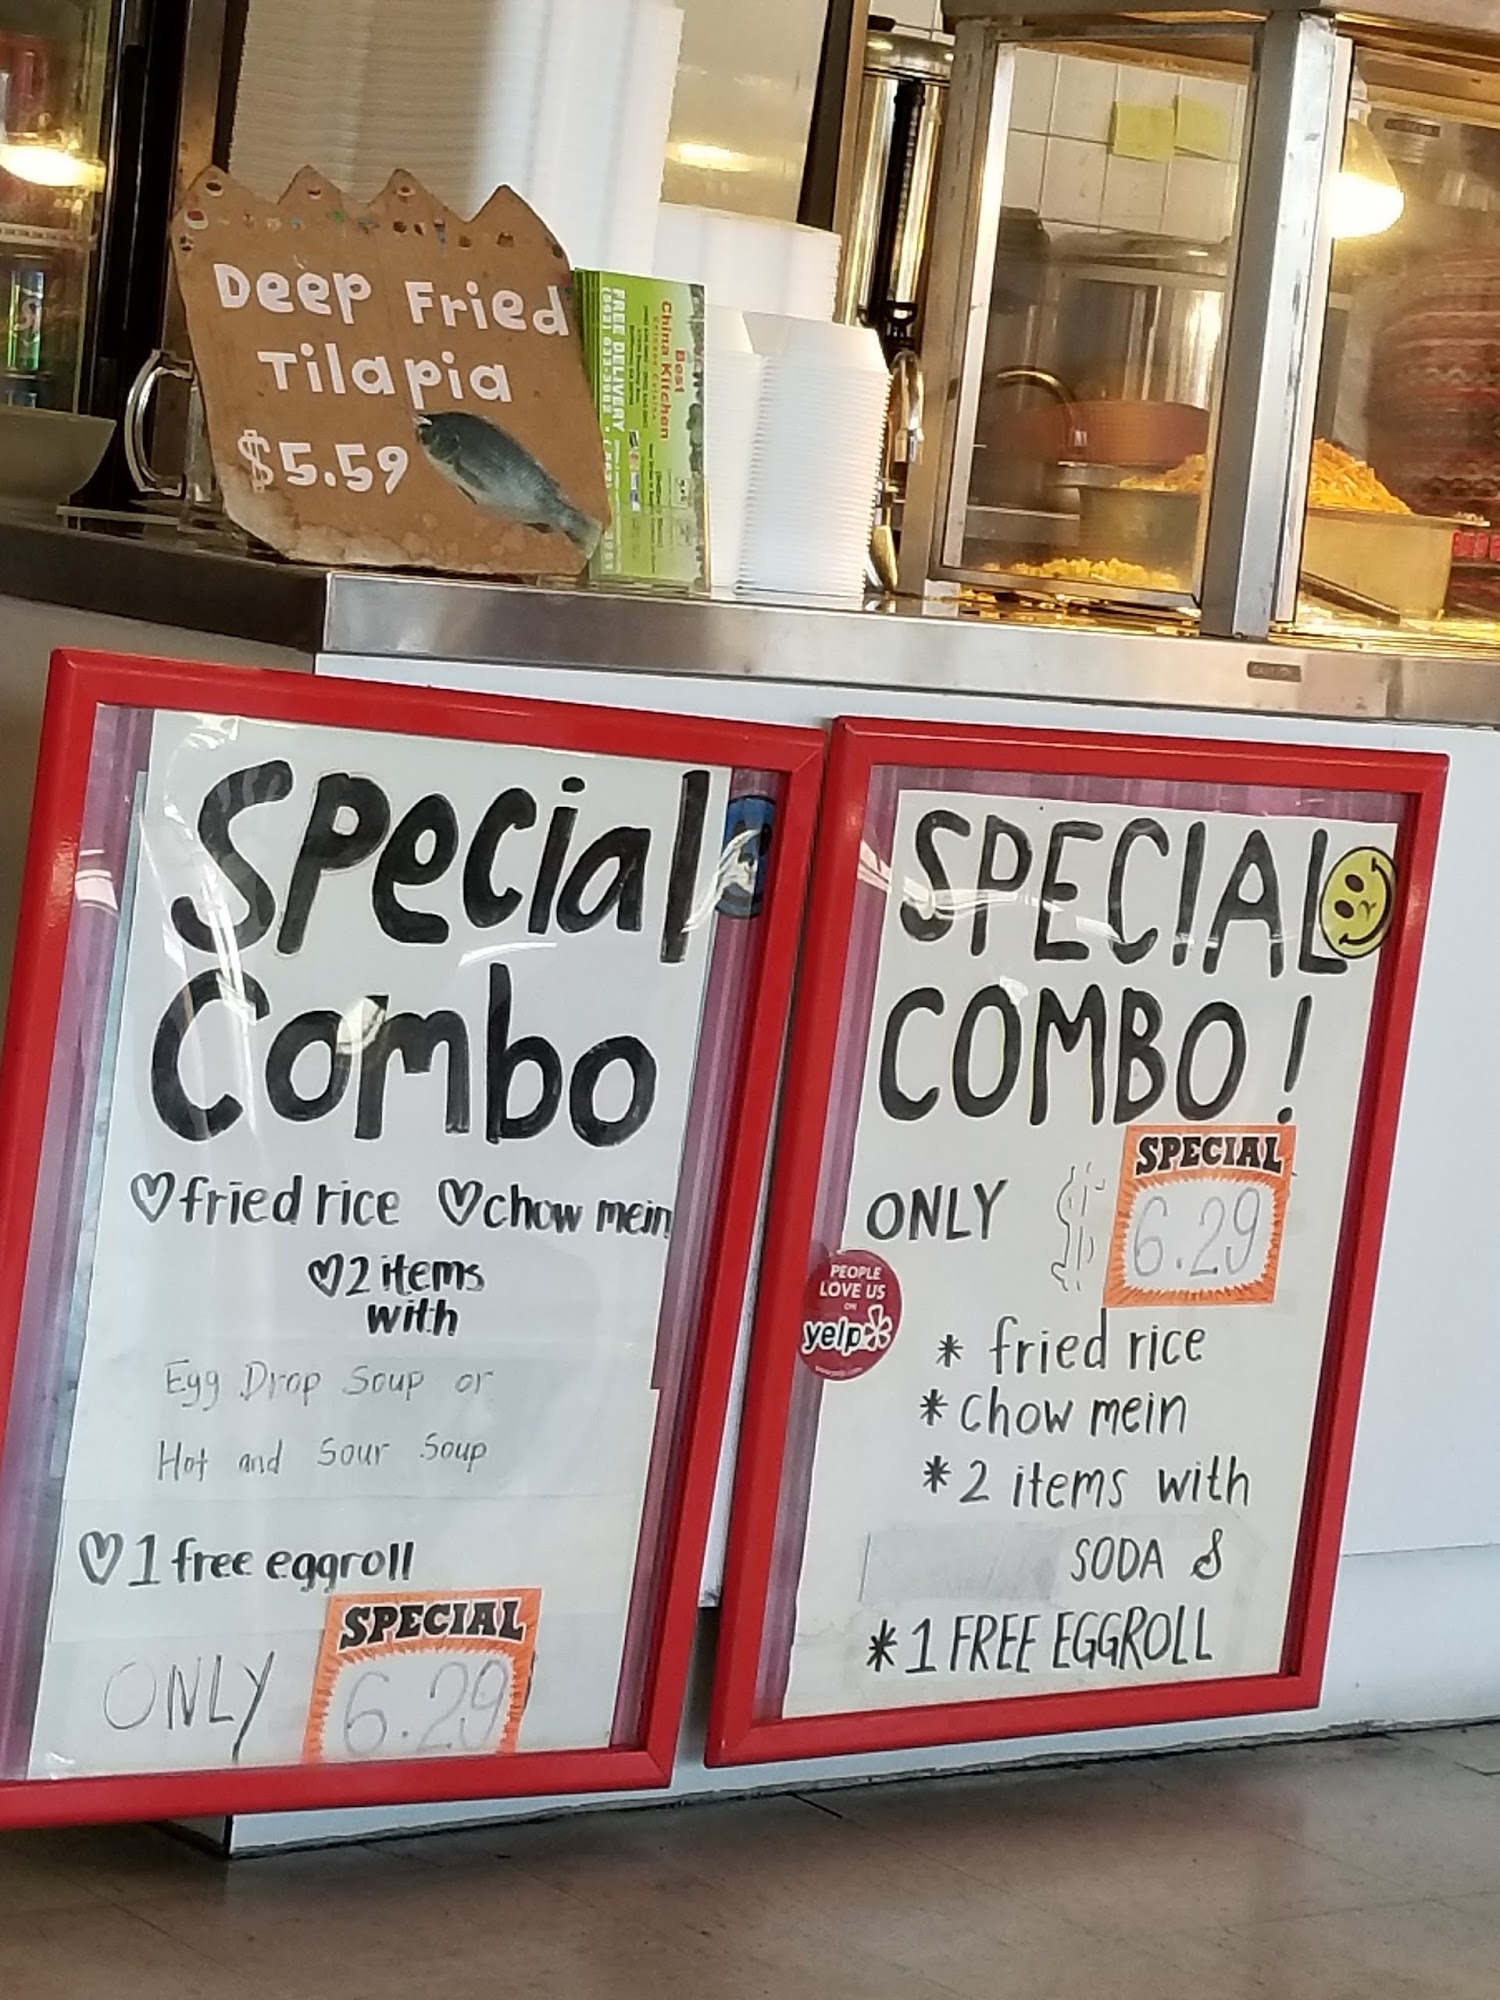 Deep Fried
Tilapia
$5.59
Best
China Kitchen
FREE DELIVERY
Special
Combo
♡fried rice ♡chow mein
♡2 items
with
Egg Drop Soup or
Hot and Sour Soup
♡1 free eggroll
ONLY
SPECIAL
6.29
SPECIAL
COMBO!
ONLY $
SPECIAL
6.29
PEOPLE
LOVE US
ON
yelp
* fried rice
* chow mein
* 2 items with
SODA &
* 1 FREE EGGROLL